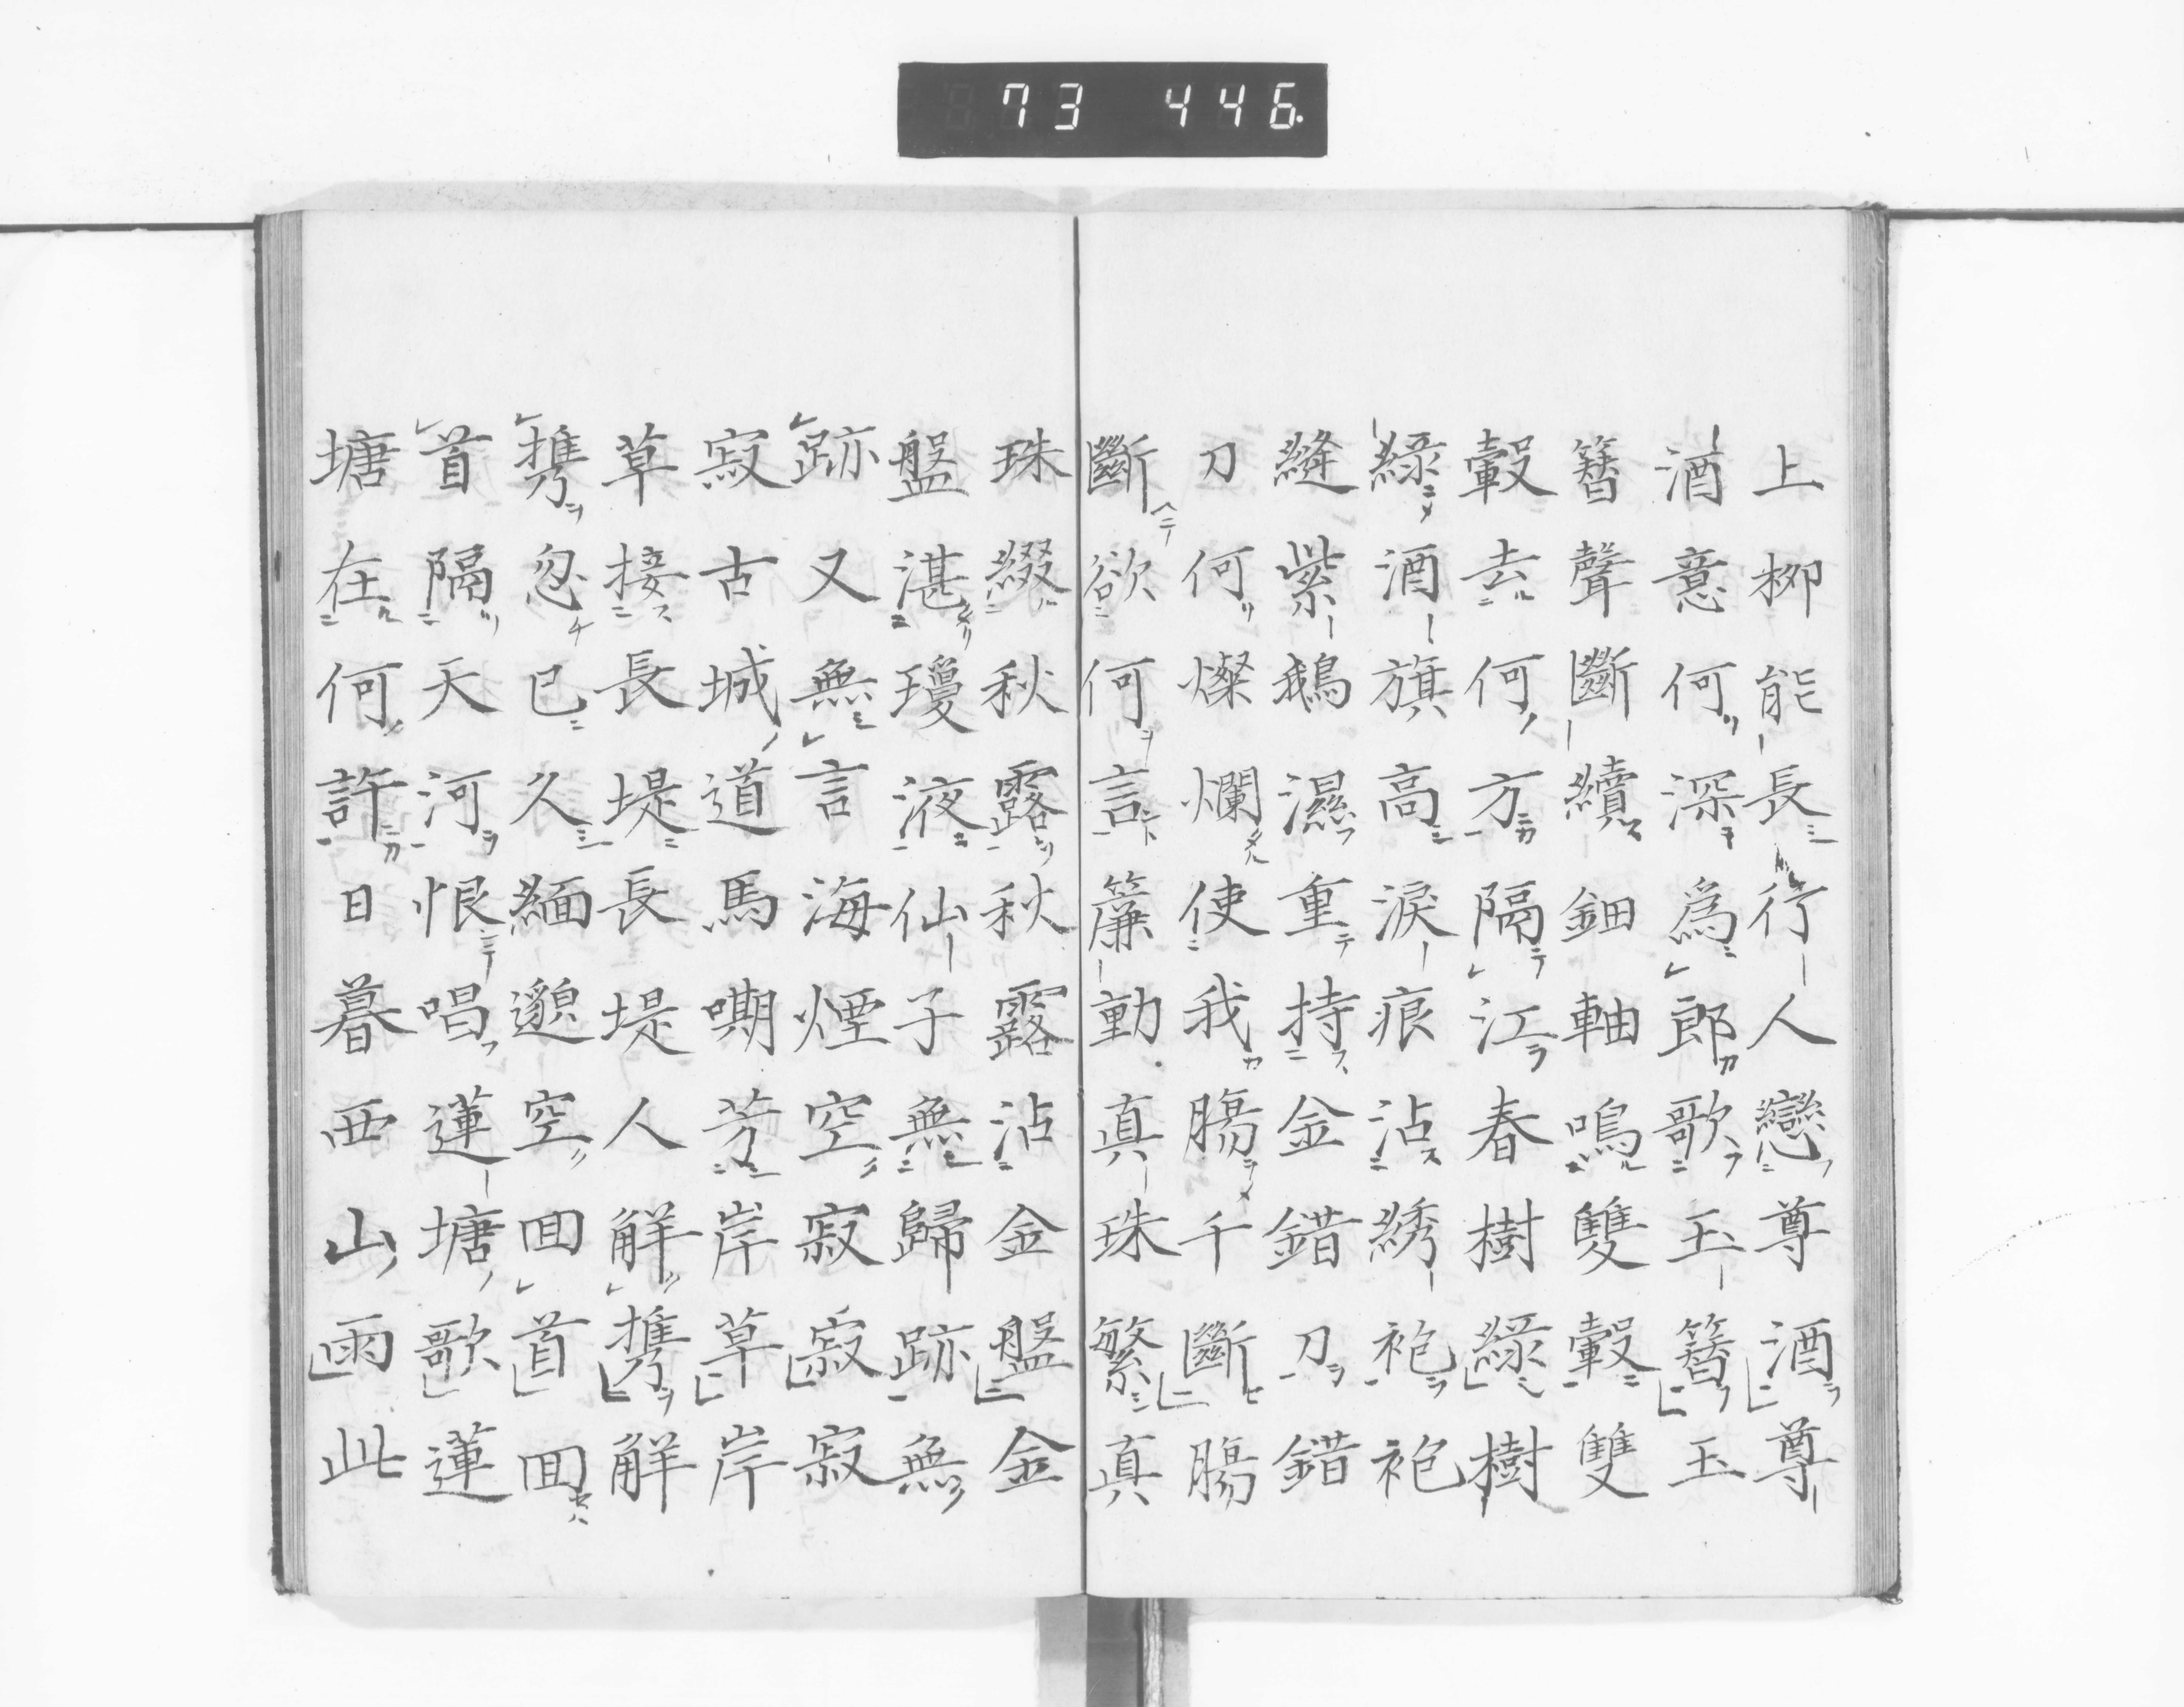 73 446
上柳能長行人戀尊酒尊
酒意何深爲郎歌玉簪玉
簪聲斷續鈿軸鳴雙轂雙
轂去何方隔江春樹綠樹
綠酒旗高淚痕沾綉袍袍
縫紫鵝濕重持金錯刀錯
刀何燦爛使我腸千斷腸
斷欲何言簾動真珠繁真
珠綴秋露秋露沾金盤金
盤湛瓊液仙子無歸跡無
跡又無言海煙空寂寂寂
寂古城道馬嘶芳岸草岸
草接長堤長堤人解携解
携忽已久緬邈空回首回
首隔天河恨唱蓮塘歌蓮
塘在何許日暮西山雨此